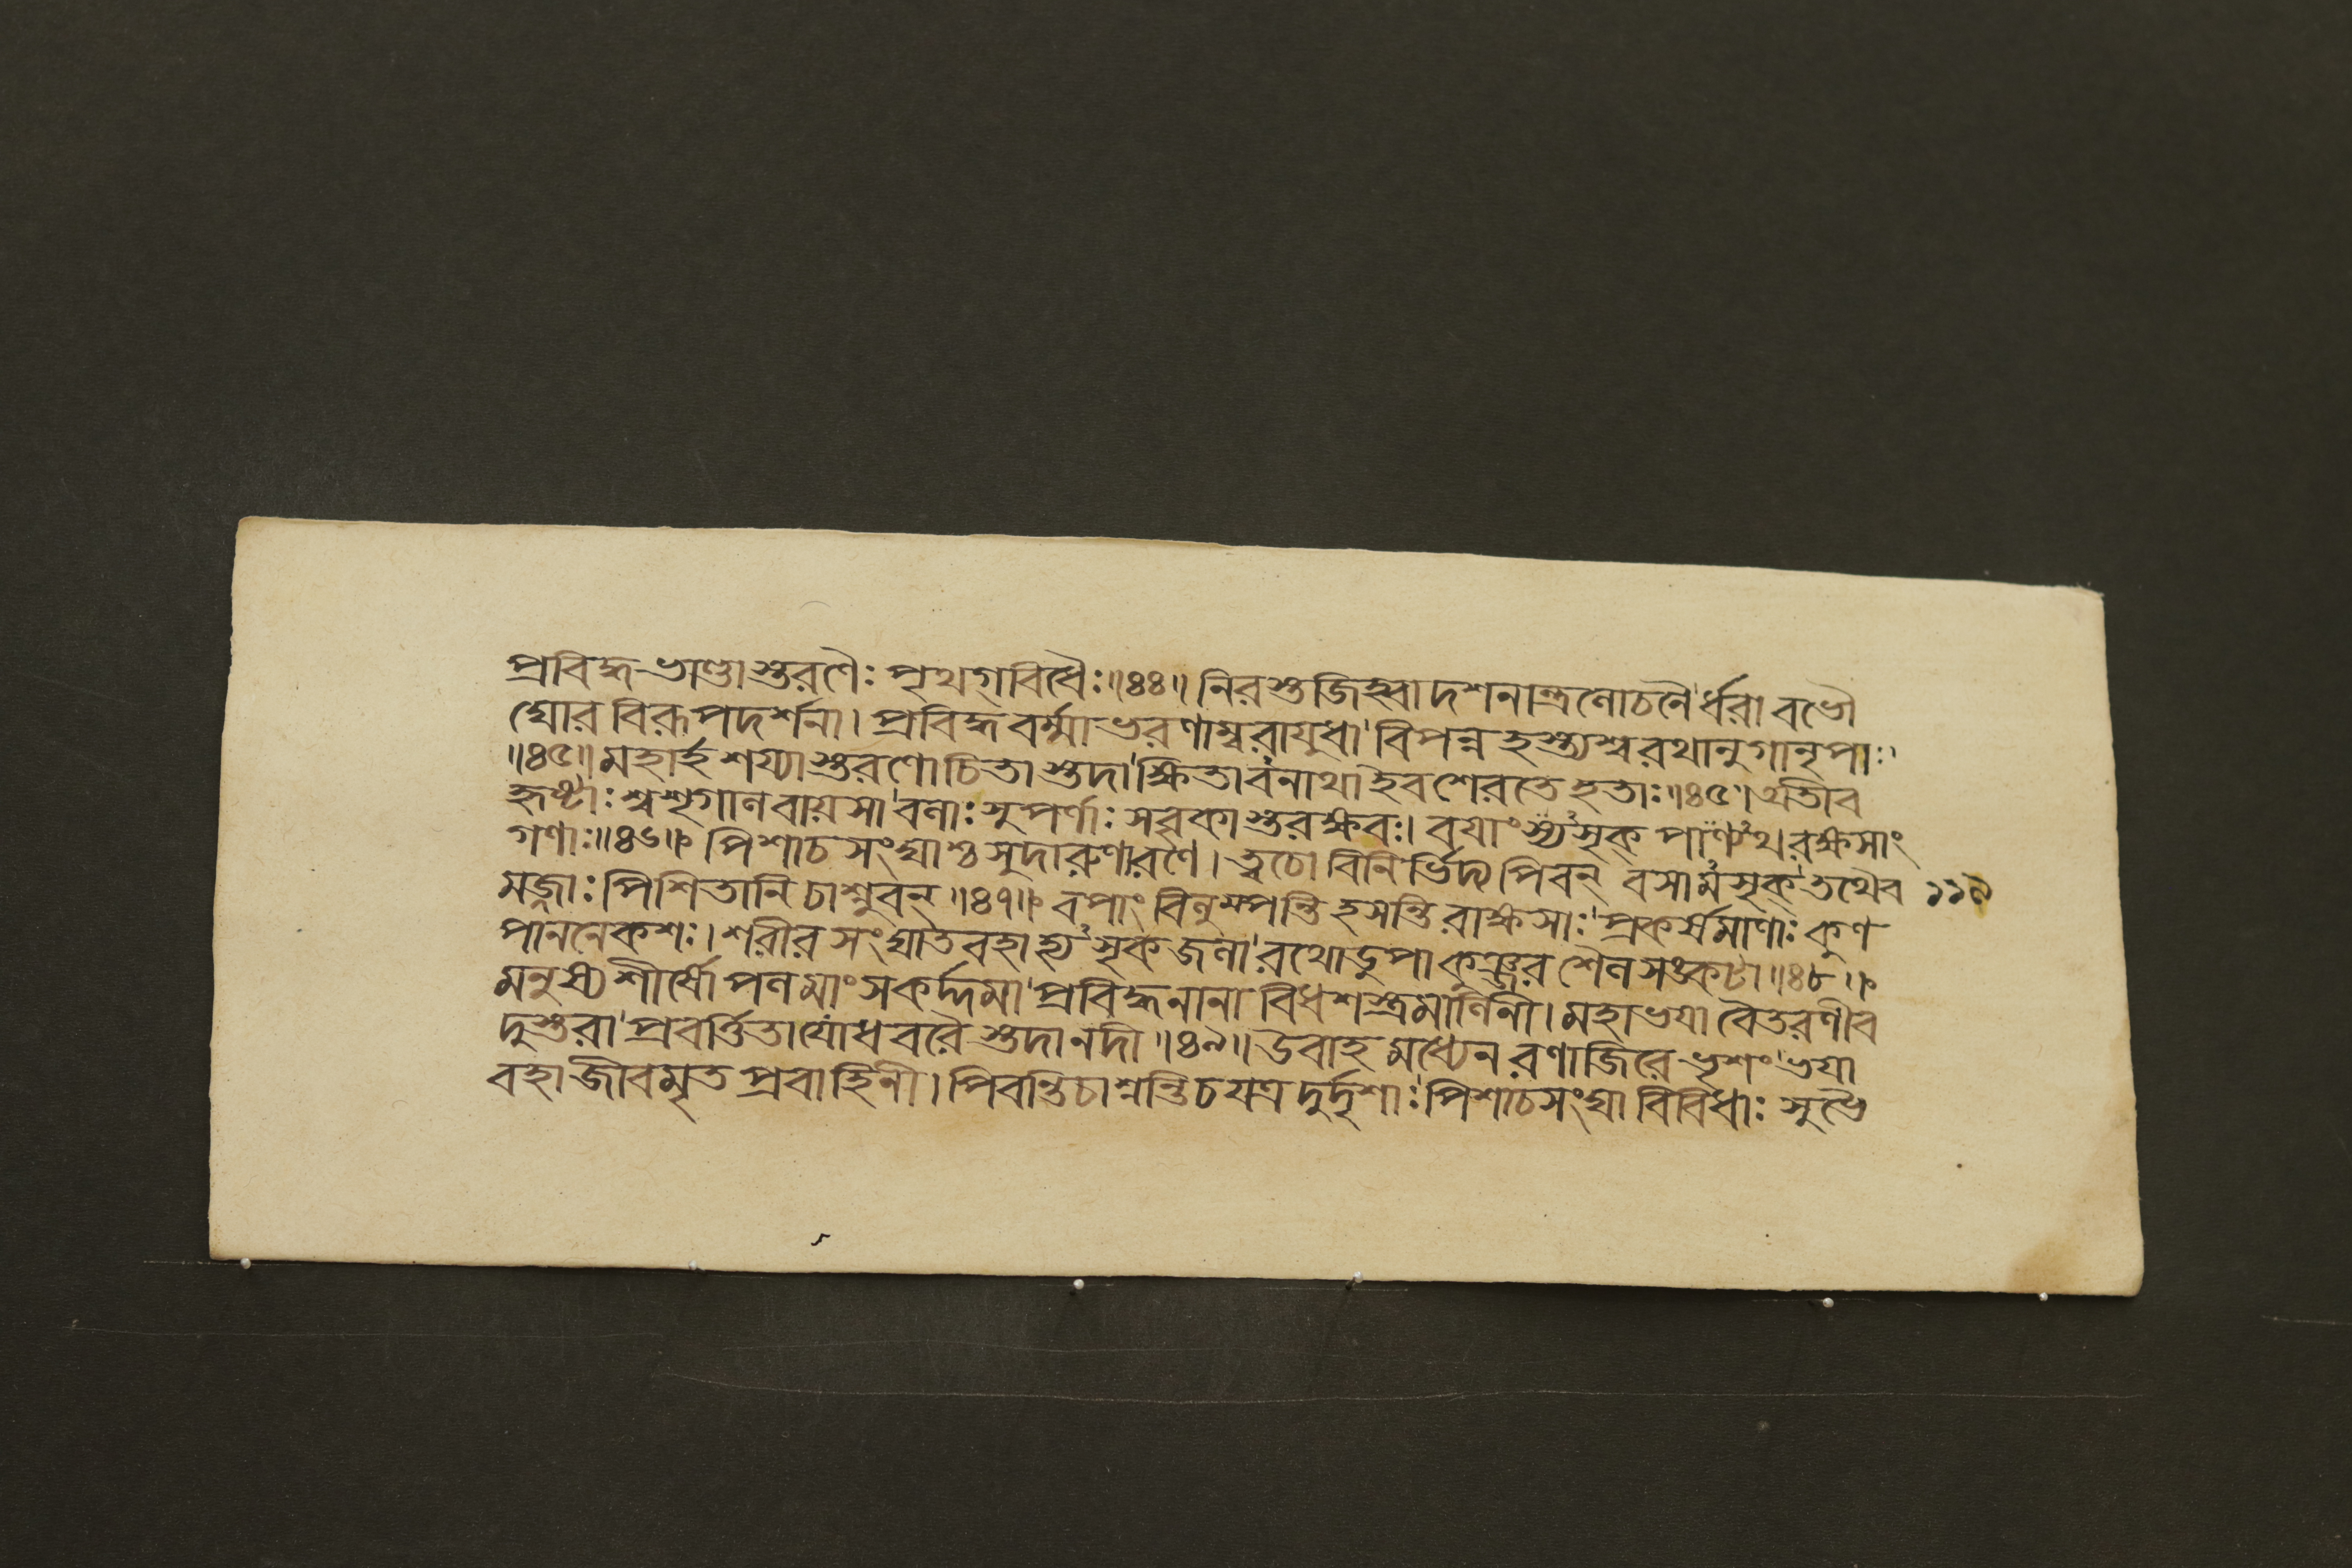 প্রবিদ্ধ ভাণ্ডাস্তরণৈঃ পৃথগ্বিধৈঃ॥৪৪॥ নিরস্তজিহ্বা দশনান্ত্রলোচনৈ'র্ধরা বভৌ
ঘোর বিরূপদর্শনা। প্রবিদ্ধ বর্ম্মাভরণাম্বরাযুধা'বিপন্ন হস্ত্যশ্বরথানুগা নৃপাঃ'
॥৪৫॥ মহার্হ শয্যাস্তরণোচিতাস্তদা'ক্ষিতাবনাথা ইব শেরতে হতাঃ॥৪৫॥ অতীব
হৃষ্টাঃ শ্বশৃগালবায়সা'বলাঃ সুপর্ণাঃ সবৃকাস্তরক্ষবঃ। বযাংস্যসৃক্ পান্যথ রক্ষসাং
গণাঃ॥৪৬॥ পিশাচ সংঘাশ্চ সুদারুণা রণে। ত্বচো বিনির্ভিদ্য পিবন্ বসামসৃক্'তথৈব
১১৯
মজ্জাঃ পিশিতানি চাশ্নুবন্॥৪৭॥ বপাং বিলুম্পন্তি হসন্তি রাক্ষসাঃ'প্রকর্সমাণাঃ কুণ
পাননেকশঃ। শরীর সংঘাতবহা হ্যসৃকজলা'রথোডুপা কুঞ্জর শৈল সঙ্কটা॥৪৮॥
মনুস্য শীর্সোপল মাংসকর্দ্দমা'প্রবিদ্ধ নানা বিধ শস্ত্রমালিনী। মহাভযা বৈতরণীব
দুস্তরা'প্রবর্ত্তিতা যোধ বরৈ স্তদা নদী॥৪৯॥ উবাহ মধ্যেন রণাজিরে ভৃশং'ভযা
বহা জীবমৃত প্রবাহিনী। পিবন্তি চাশ্নন্তি চ যত্র দুর্দৃশাঃ'পিশাচসংঘা বিবিধাঃ সুভৈ